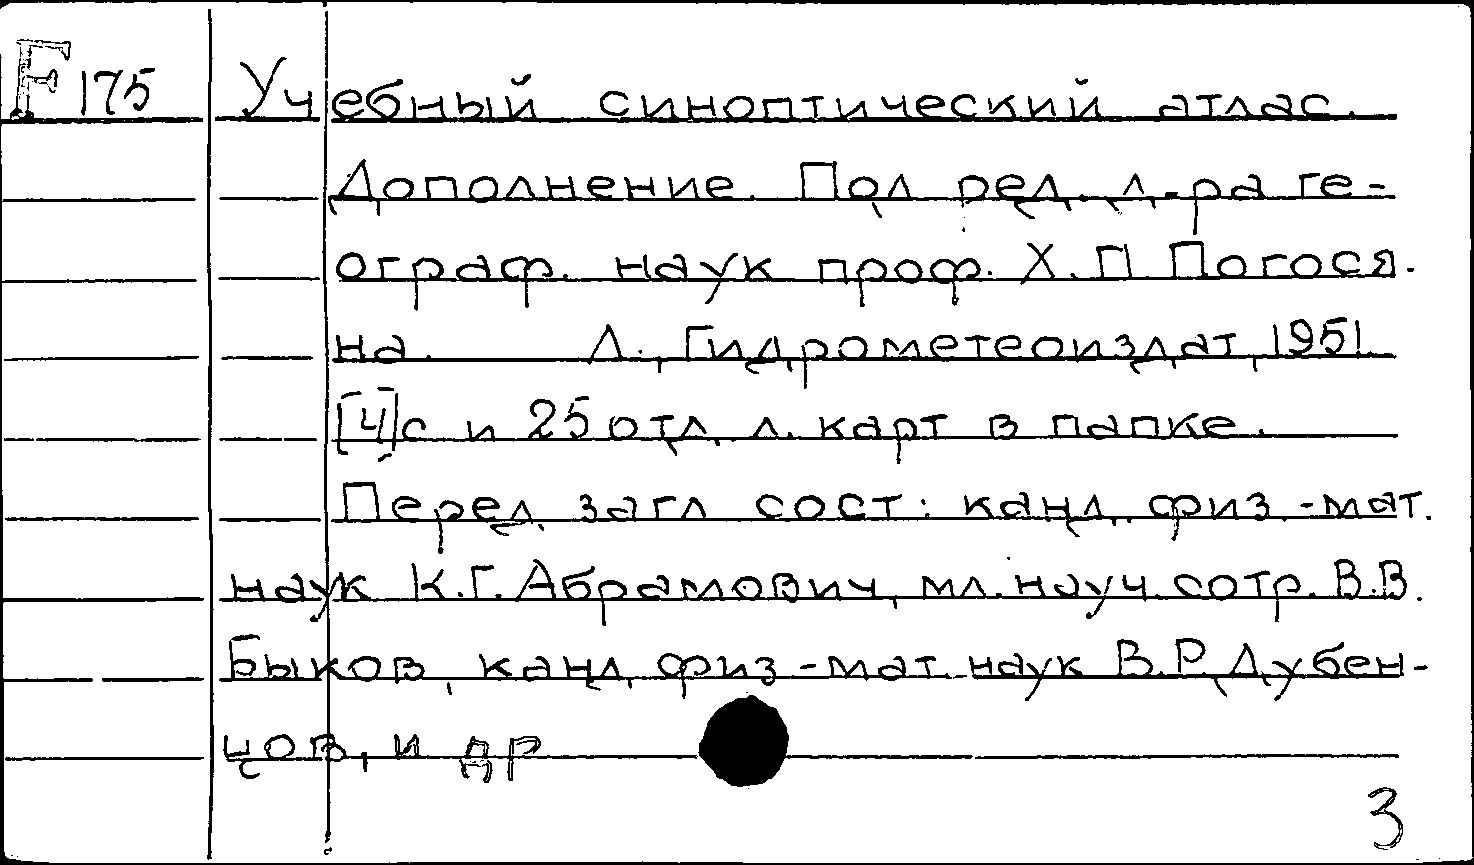 F 175 Учебный синоптический атлас.
Дополнение. Под ред. д-ра ге-
ограф. наук проф. Х.П. Погося-
на. Л., Гидрометеоиздат, 1951.
[4]с и 25 отд. л. карт в папке.
Перед загл сост: канд. физ.-мат.
наук К.Г. Абрамович, мл. науч. сотр. В.В.
Быков, канд. физ-мат. наук В.Р. Дубен-
цов, и др
3